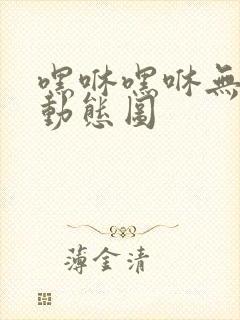 嘿咻嘿咻無
動態圖
薄金清